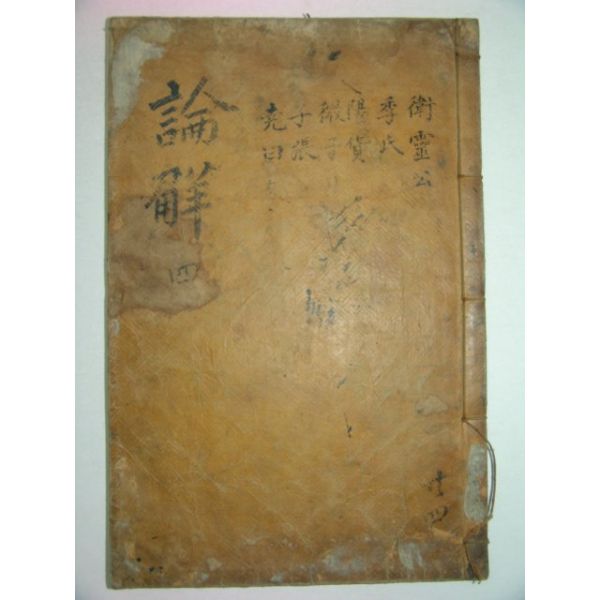 衛靈公
季氏
陽貨
微子
子張
堯曰
論解
四
共四